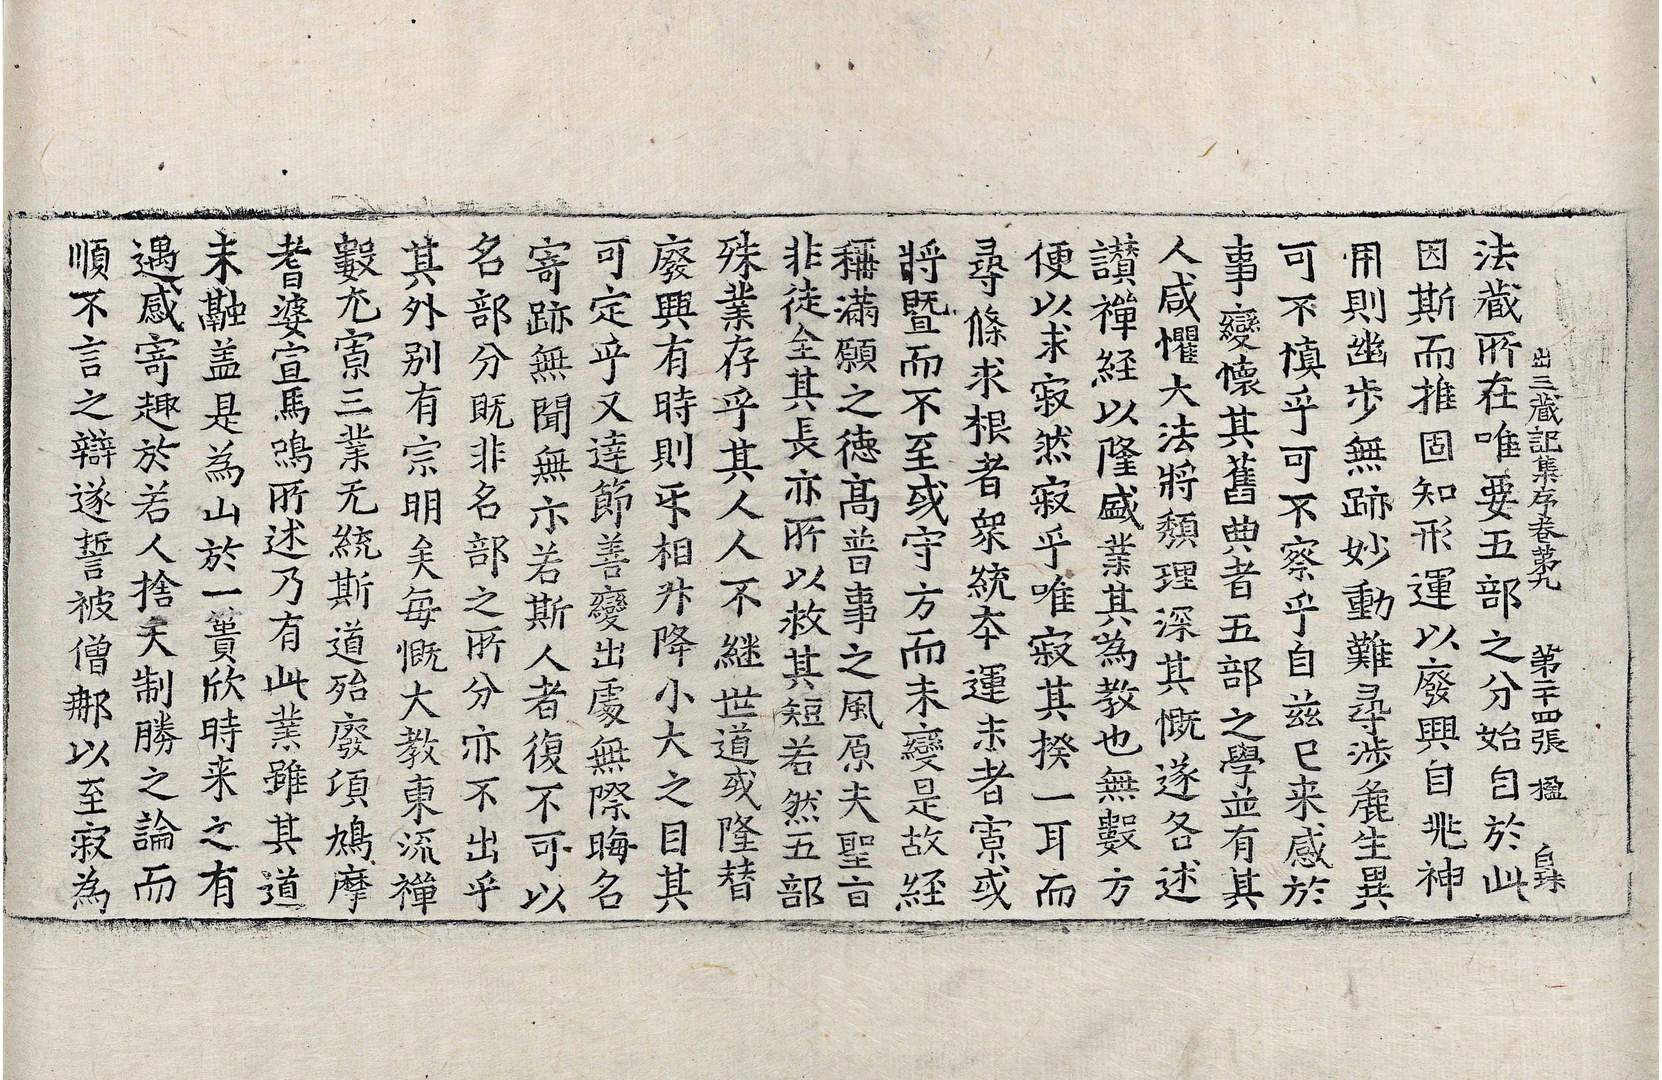 出三藏記集序卷第九 第二十四張 楹 自珠
法藏所在唯要五部之分始自於此
因斯而推固知形運以廢興自兆神
用則幽步無跡妙動難尋涉麁生異
可不慎乎可不察乎自茲已来感於
事變懷其舊典者五部之學並有其
人咸懼大法將頹理深其慨遂各述
讚禪経以隆盛業其為教也無數方
便以求寂然寂乎唯寂其揆一耳而
尋條求根者衆統夲運末者寡或
將曁而不至或守方而未變是故経
稱滿願之德高普事之風原夫聖旨
非徒全其長亦所以救其短若然五部
殊業存乎其人人不継世道或隆替
廢興有時則㸦相升降小大之目其
可定乎又達節善變出處無際晦名
寄跡無聞無示若斯人者復不可以
名部分既非名部之所分亦不出乎
其外別有宗明矣每慨大教東流禪
數尤寡三業无統斯道殆廢頃鳩摩
耆婆宣馬鳴所述乃有此業雖其道
未融盖是為山於一蕢欣時来之有
遇感寄趣於若人捨夫制勝之論而
順不言之辯遂誓被僧那以至寂為